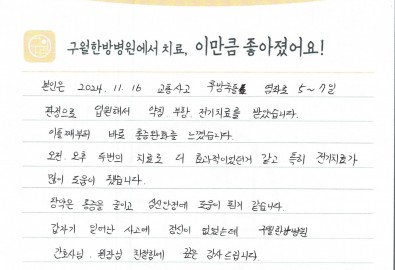 구월한방병원에서 치료, 이만큼 좋아졌어요!
본인은 2024. 11. 16 교통사고 후방추돌로 염좌로 5~7일
관찰으로 입원해서 약침. 부항. 전기치료를 받았습니다.
이틀째부터 바로 통증완화를 느꼈습니다.
오전. 오후 두번의 치료로 더 효과적이었던거 같고 특히 전기치료가
많이 도움이 됐습니다.
한약은 통증을 줄이고 심신안정에 도움이 된거 같습니다.
갑자기 일어난 사고에 정신이 없었는데 구월한방병원
간호사님. 원장님 친절함에 깊은 감사드립니다.